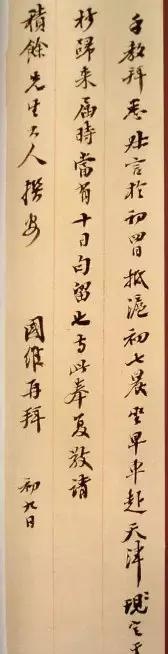 手教拜悉貽言於初四日抵滬初七晨坐早車赴天津現定五
抄歸來届時當有十日勾留也專此奉复敬請
積餘先生大人撰安
國維再拜
初九日